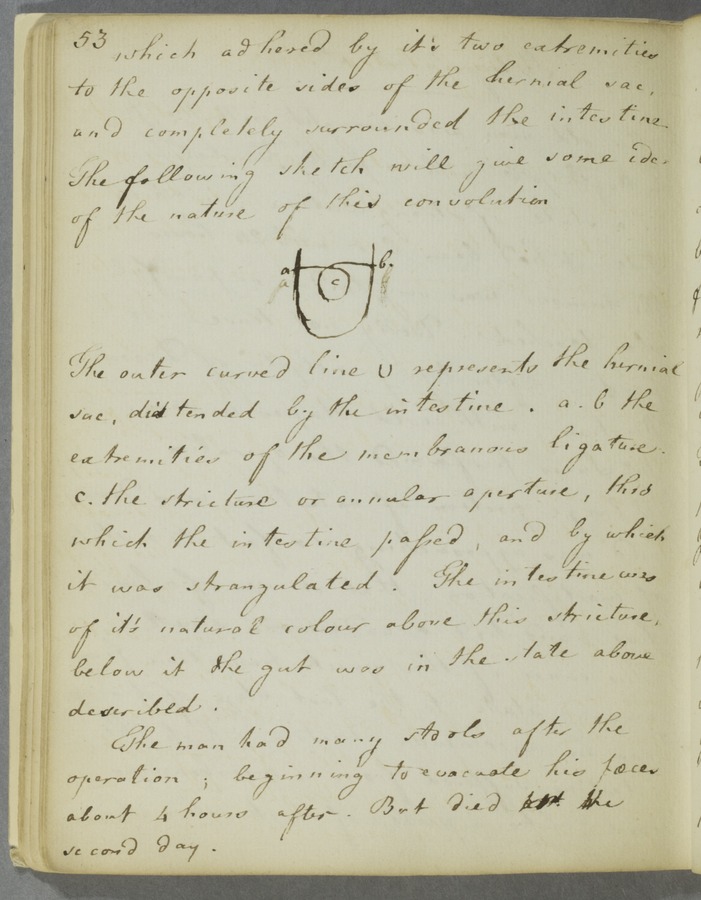 53
which adhered by it's two extremities
to the opposite sides of the hernial sac,
and completely surrounded the intestine
The following sketch will give some idea
of the nature of this convolution
a b.
a c b
The outer curved line U represents the hernial
sac, distended by the intestine. a. b the
extremities of the membranous ligature.
c. the stricture or annular aperture, thro
which the intestine passed, and by which
it was strangulated. The intestine was
of it's natural colour above this stricture,
below it the gut was in the state above
described.
The man had many stools after the
operation; beginning to evacuate his fæces
about 4 hours after. But died the
second day.